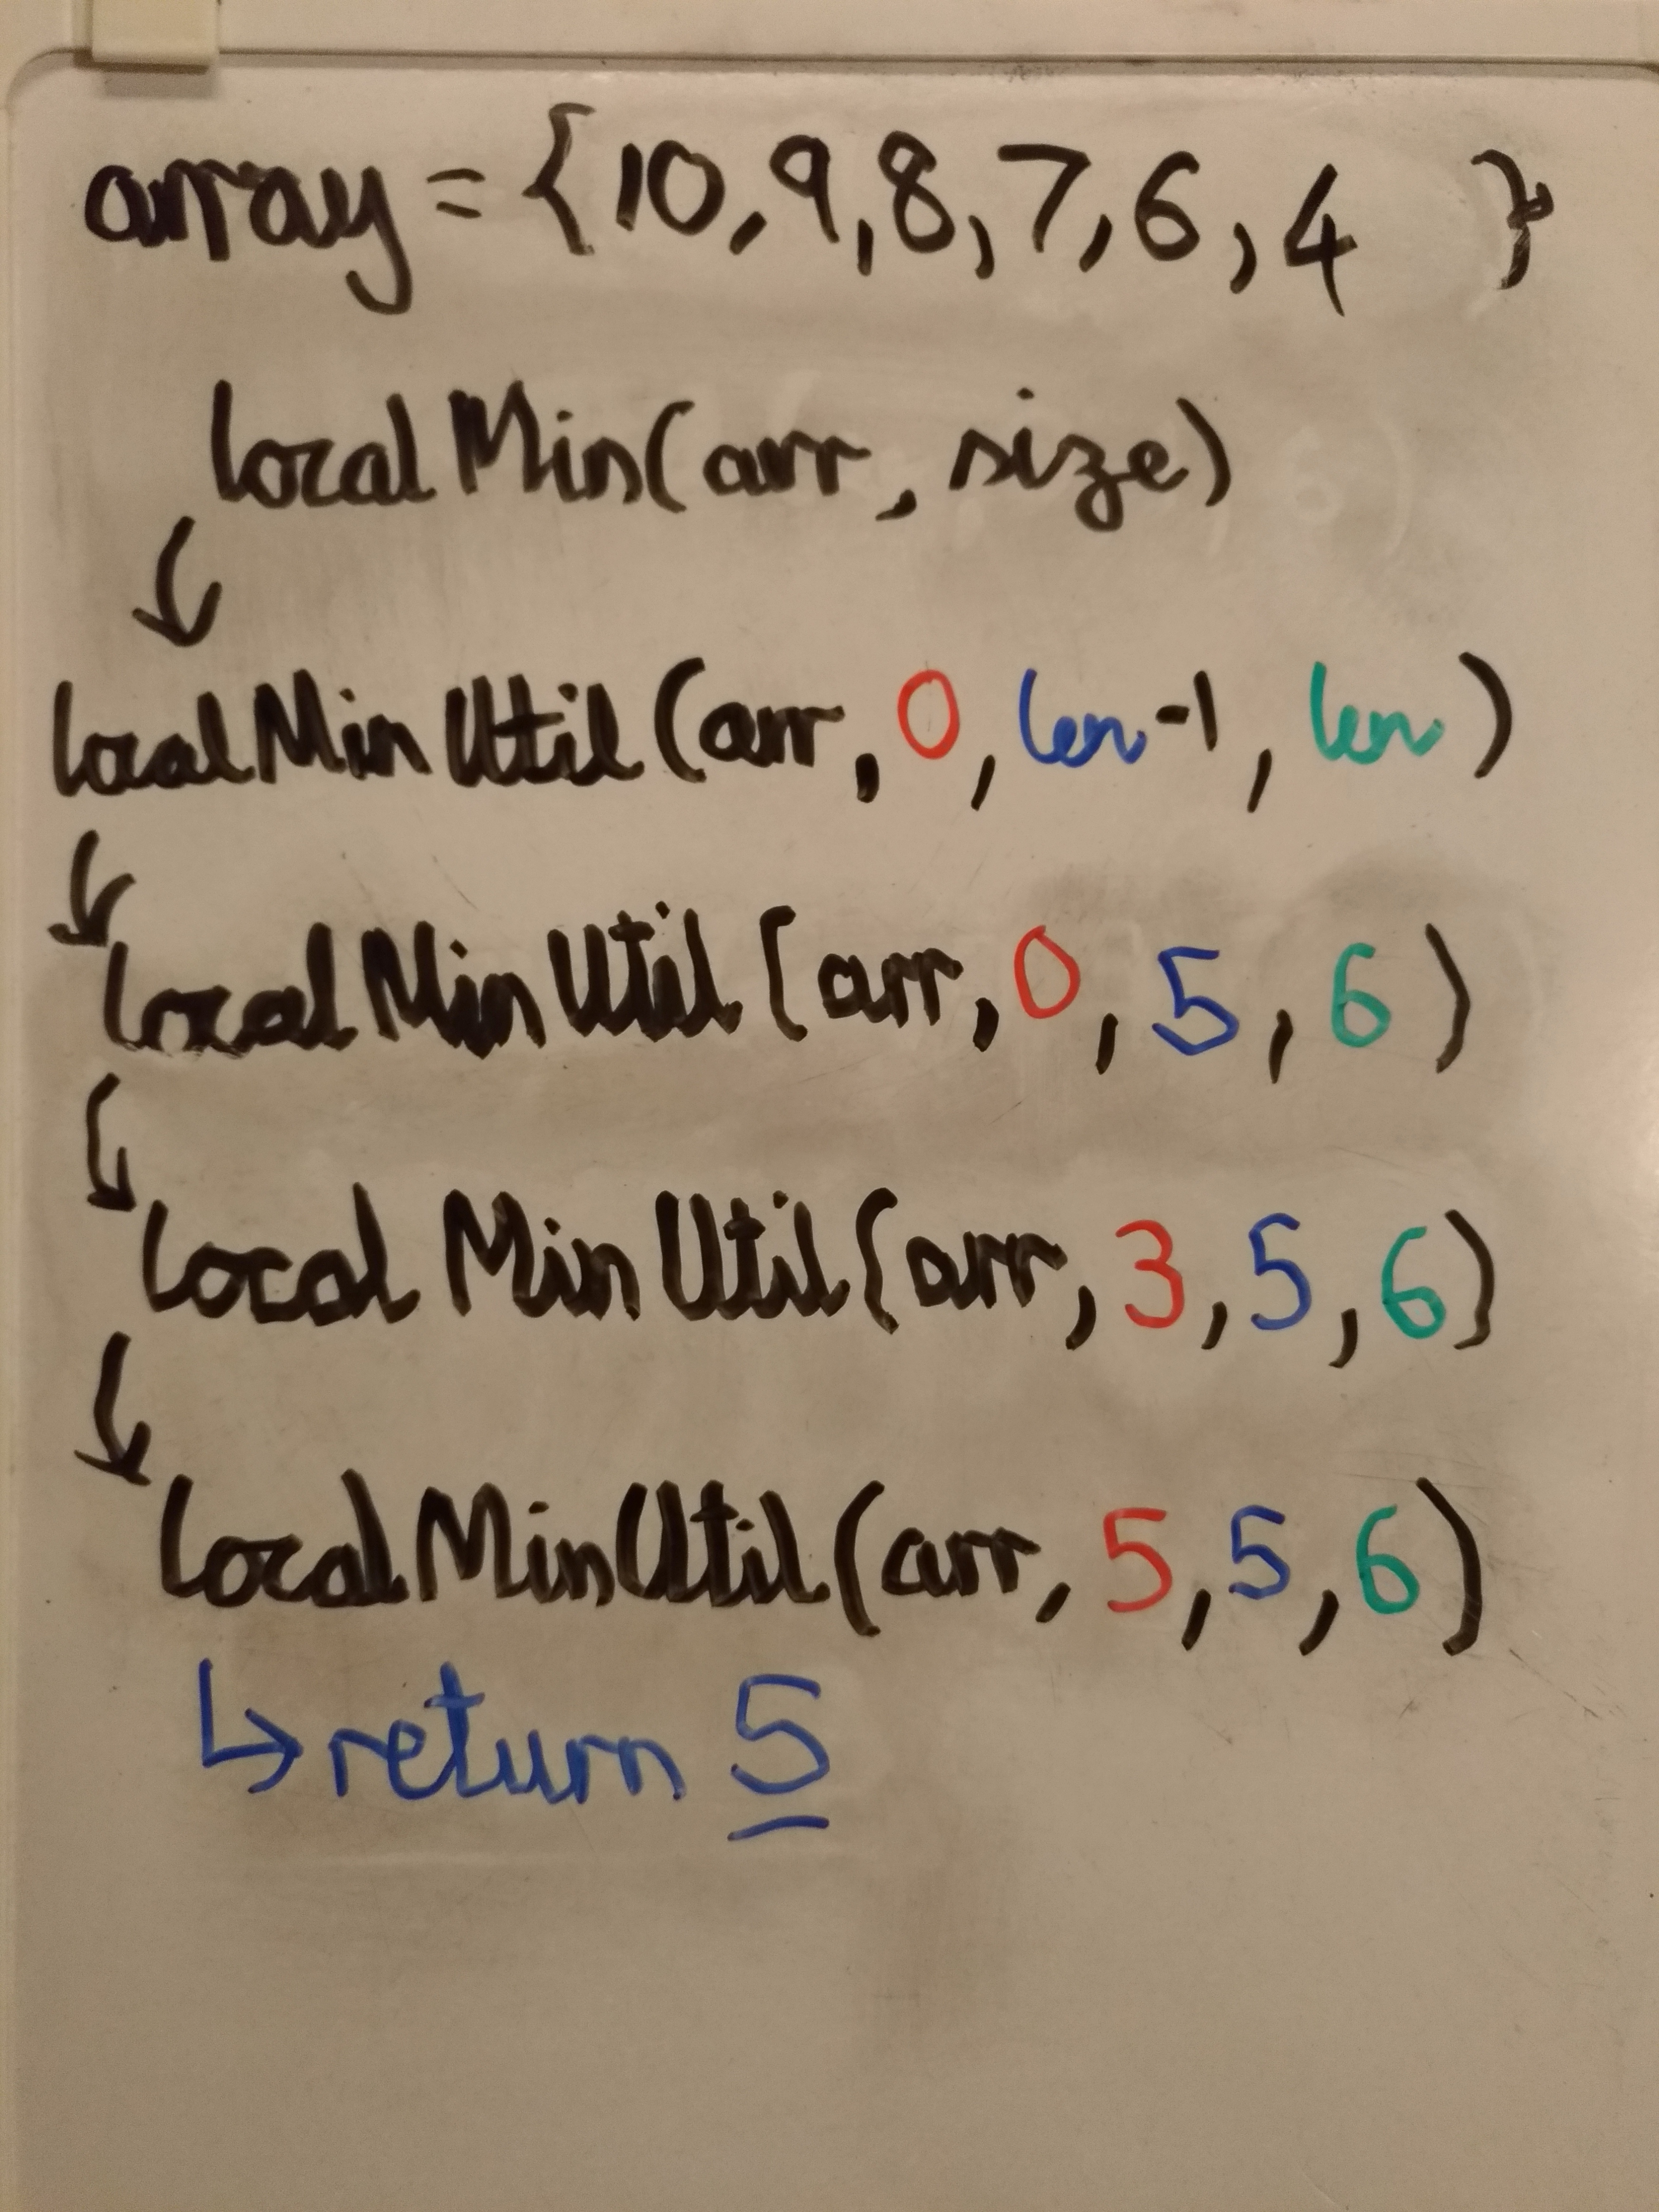 array = {10, 9, 8, 7, 6, 4 }
localMin(arr, size)
localMinUtil(arr, 0, len-1, len)
localMinUtil(arr, 0, 5, 6)
localMinUtil(arr, 3, 5, 6)
localMinUtil(arr, 5, 5, 6)
↳ return 5